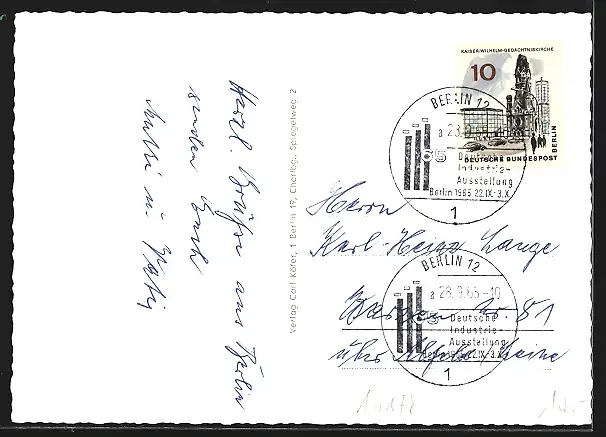 Herzl. Grüße aus Berlin
senden Euch
Mutti u. Kati
Verlag Carl Köfer, 1 Berlin 19, Charlbg., Spiegelweg 2
KAISER-WILHELM-GEDÄCHTNISKIRCHE
10
DEUTSCHE BUNDESPOST
BERLIN
BERLIN 12
a 23.9.
Deutsche
Industrie-
Ausstellung
Berlin 1965 22.IX.-3.X.
1
Herrn
Karl-Heinz Lange
BERLIN 12
a 28.9.65-10
Nr. 51
Deutsche
Industrie-
Ausstellung
Berlin 1965 22.IX.-3.X.
über Alfeld/Leine
1